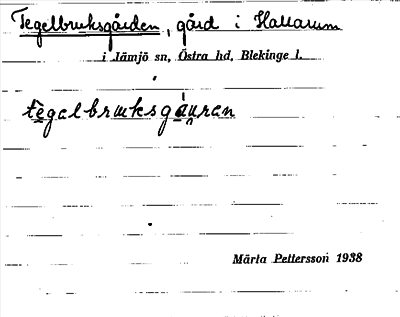 Tegelbruksgården, gård i Hallarum
i Jämjö sn, Östra hd, Blekinge l.
tègalbruksgáu̯ran
Märta Pettersson 1938